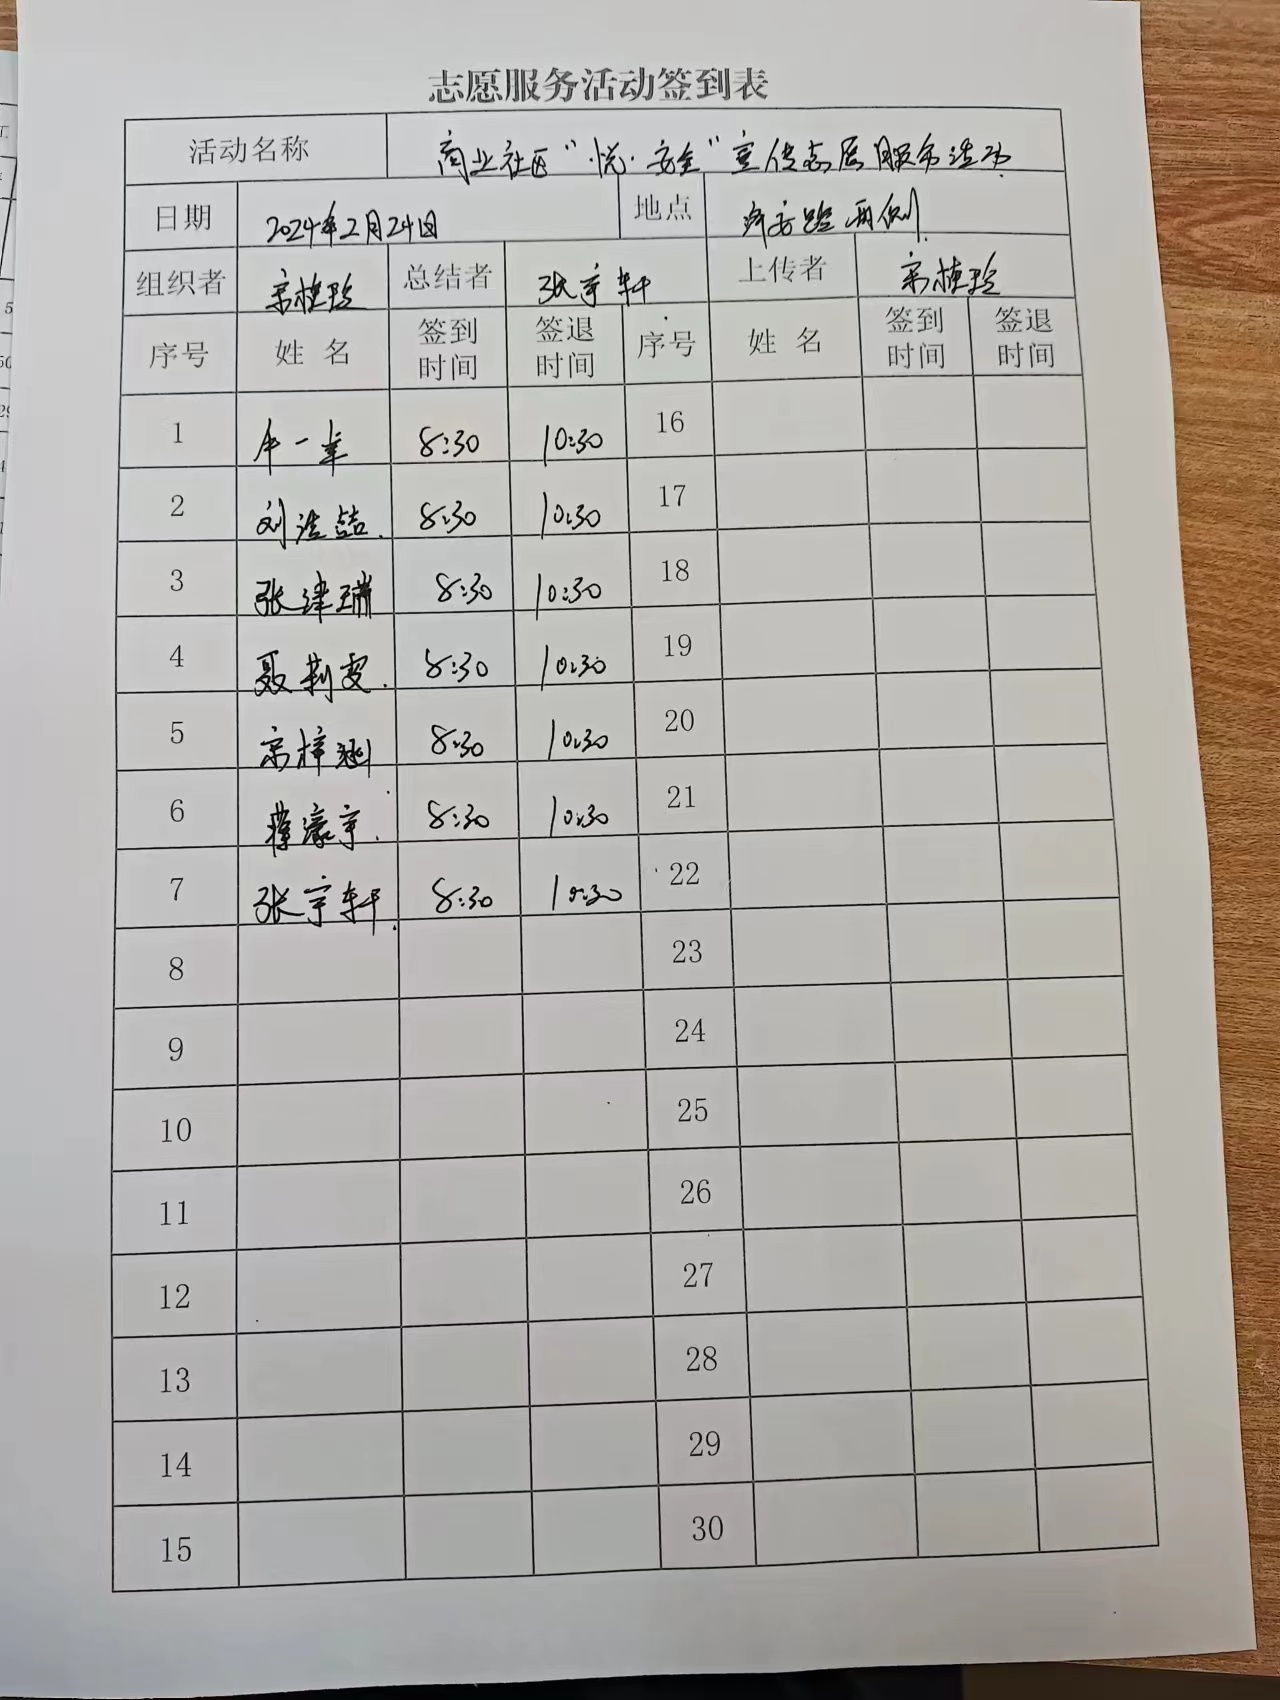 志愿服务活动签到表
活动名称 商业社区“悦·安全”宣传志愿服务活动
日期 2024年2月24日 地点 路两侧
组织者 宋 总结者 张宇轩 上传者 宋
序号 姓名 签到时间 签退时间 序号 姓名 签到时间 签退时间
1 一 8:30 10:30 16
2 刘洁喆 8:30 10:30 17
3 张津瑞 8:30 10:30 18
4 聂荆雯 8:30 10:30 19
5 宋梓涵 8:30 10:30 20
6 蔡濠宇 8:30 10:30 21
7 张宇轩 8:30 10:30 22
8 23
9 24
10 25
11 26
12 27
13 28
14 29
15 30